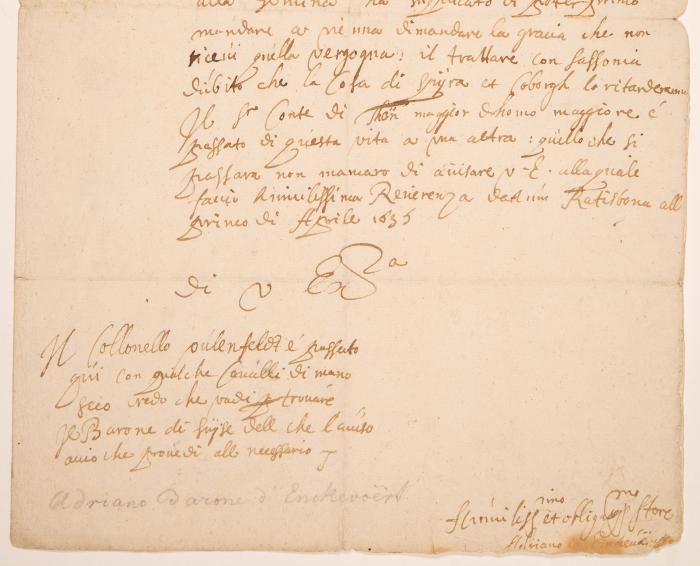 alla ha supplicato di poter primo
mandare a vienna dimandare la gracia che non
ricevi quella vergogna: il trattare con sassonia
dubito che la Cosa di et Coborgh lo ritarderanno
Il Sr Conte di maggior dhomo maggiore é
passato di questa vita a una altra: quello che si
passara non mancaro di avisare v. E. alla quale
faccio humilissima Reverenza Ratisbona all
primo di Aprile 1635
di v Exa
Il Collonello ovlenfeldt é passato
qui con qualche Cavalli di mano
seco credo che vadi a trovare
Il Barone di dell che l'aviso
acio che provedi all necessario
Adriano Barone d'Enckevoërt
et oblig